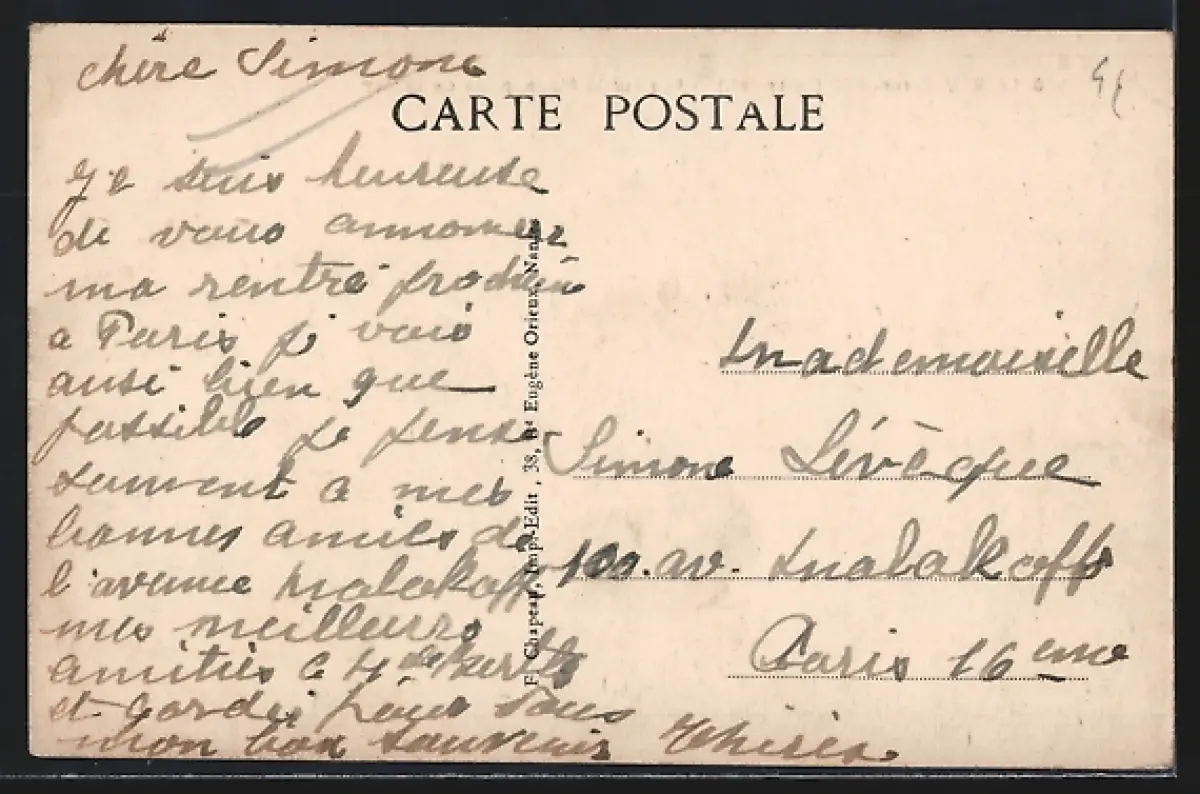 chère Simone
CARTE POSTALE
Je suis heureuse
de vous annoncer
ma rentré prochain
a Paris je vais
ausi bien que
possible je pense
souvent a mes
bonnes amies de
l'avenue Malakoff
mes meilleurs
amitiés a
et gardez pour vous
mon bon souvenir
F. Chapeau, Imp.-Edit., 38, Rte Eugène Orieux, Nantes
Mademoiselle
Simone Lévèque
100. av. Malakoff
Paris 16 eme